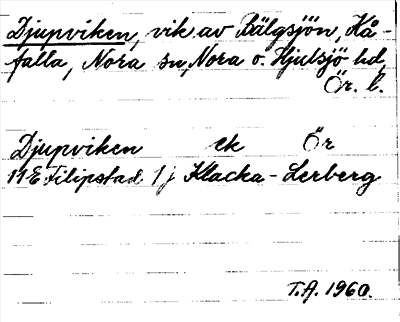 Djupviken, vik av Bälgsjön, Hå-
falla, Nora sn, Nora o. Hjulsjö hd,
Ör. l.
Djupviken ek Ör
11E Filipstad 1j Klacka-Lerberg
T.A. 1960.